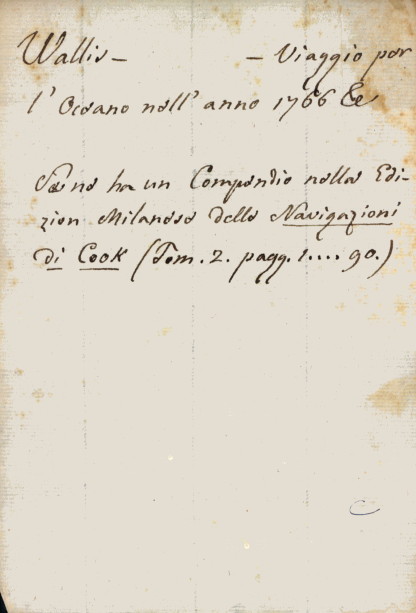 Wallis – – Viaggio per
l'Oceano nell'anno 1766 &c
Se ne ha un Compendio nella Edi-
zion Milanese delle Navigazioni
di Cook (Tom. 2. pagg. 1.... 90.)